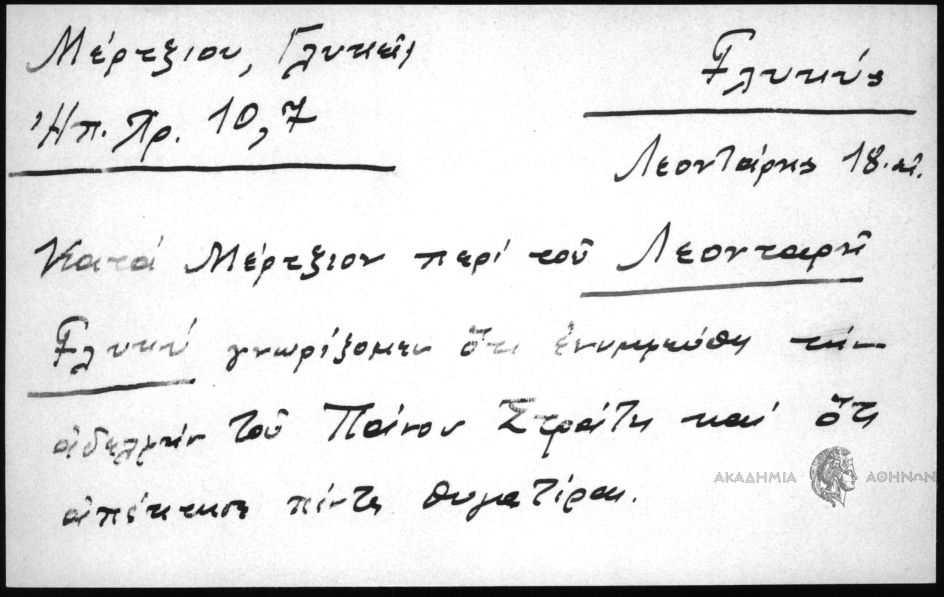 Μέρτζιου, Γλυκεῖς
Ἠπ. Χρ. 10,7
Γλυκύς
Λεοντάρης 18. αἰ.
Κατά Μέρτζιον περί τοῦ Λεονταρῆ
Γλυκύ γνωρίζομεν ὅτι ἐνυμφεύθη τήν
ἀδελφήν τοῦ Πάνου Στράτη καί ὅτι
ἀπέκτησε πέντε θυγατέρας.
ΑΚΑΔΗΜΙΑ ΑΘΗΝΩΝ